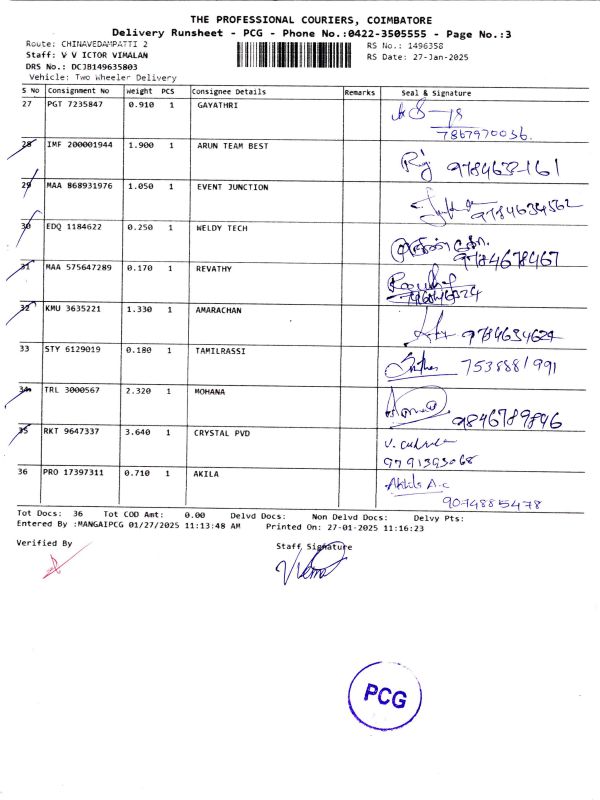 THE PROFESSIONAL COURIERS, COIMBATORE
Delivery Runsheet - PCG - Phone No.:0422-3505555 - Page No.:3
Route: CHINAVEDAMPATTI 2 RS No.: 1496358
Staff: V V ICTOR VIMALAN RS Date: 27-Jan-2025
DRS No.: DCJB149635803
Vehicle: Two Wheeler Delivery
S No Consignment No Weight PCS Consignee Details Remarks Seal & Signature
27 PGT 7235847 0.910 1 GAYATHRI
7867970036.
28 IMF 200001944 1.900 1 ARUN TEAM BEST
29 MAA 868931976 1.050 1 EVENT JUNCTION
9784634562
30 EDQ 1184622 0.250 1 WELDY TECH
9784678467
31 MAA 575647289 0.170 1 REVATHY
32 KMU 3635221 1.330 1 AMARACHAN
9784634624
33 STY 6129019 0.180 1 TAMILRASSI
7538881991
34 TRL 3000567 2.320 1 MOHANA
9846789846
35 RKT 9647337 3.640 1 CRYSTAL PVD
9791393068
36 PRO 17397311 0.710 1 AKILA
Akila A.c
9074885478
Tot Docs: 36 Tot COD Amt: 0.00 Delvd Docs: Non Delvd Docs: Delvy Pts:
Entered By :MANGAIPCG 01/27/2025 11:13:48 AM Printed On: 27-01-2025 11:16:23
Verified By Staff Signature
PCG